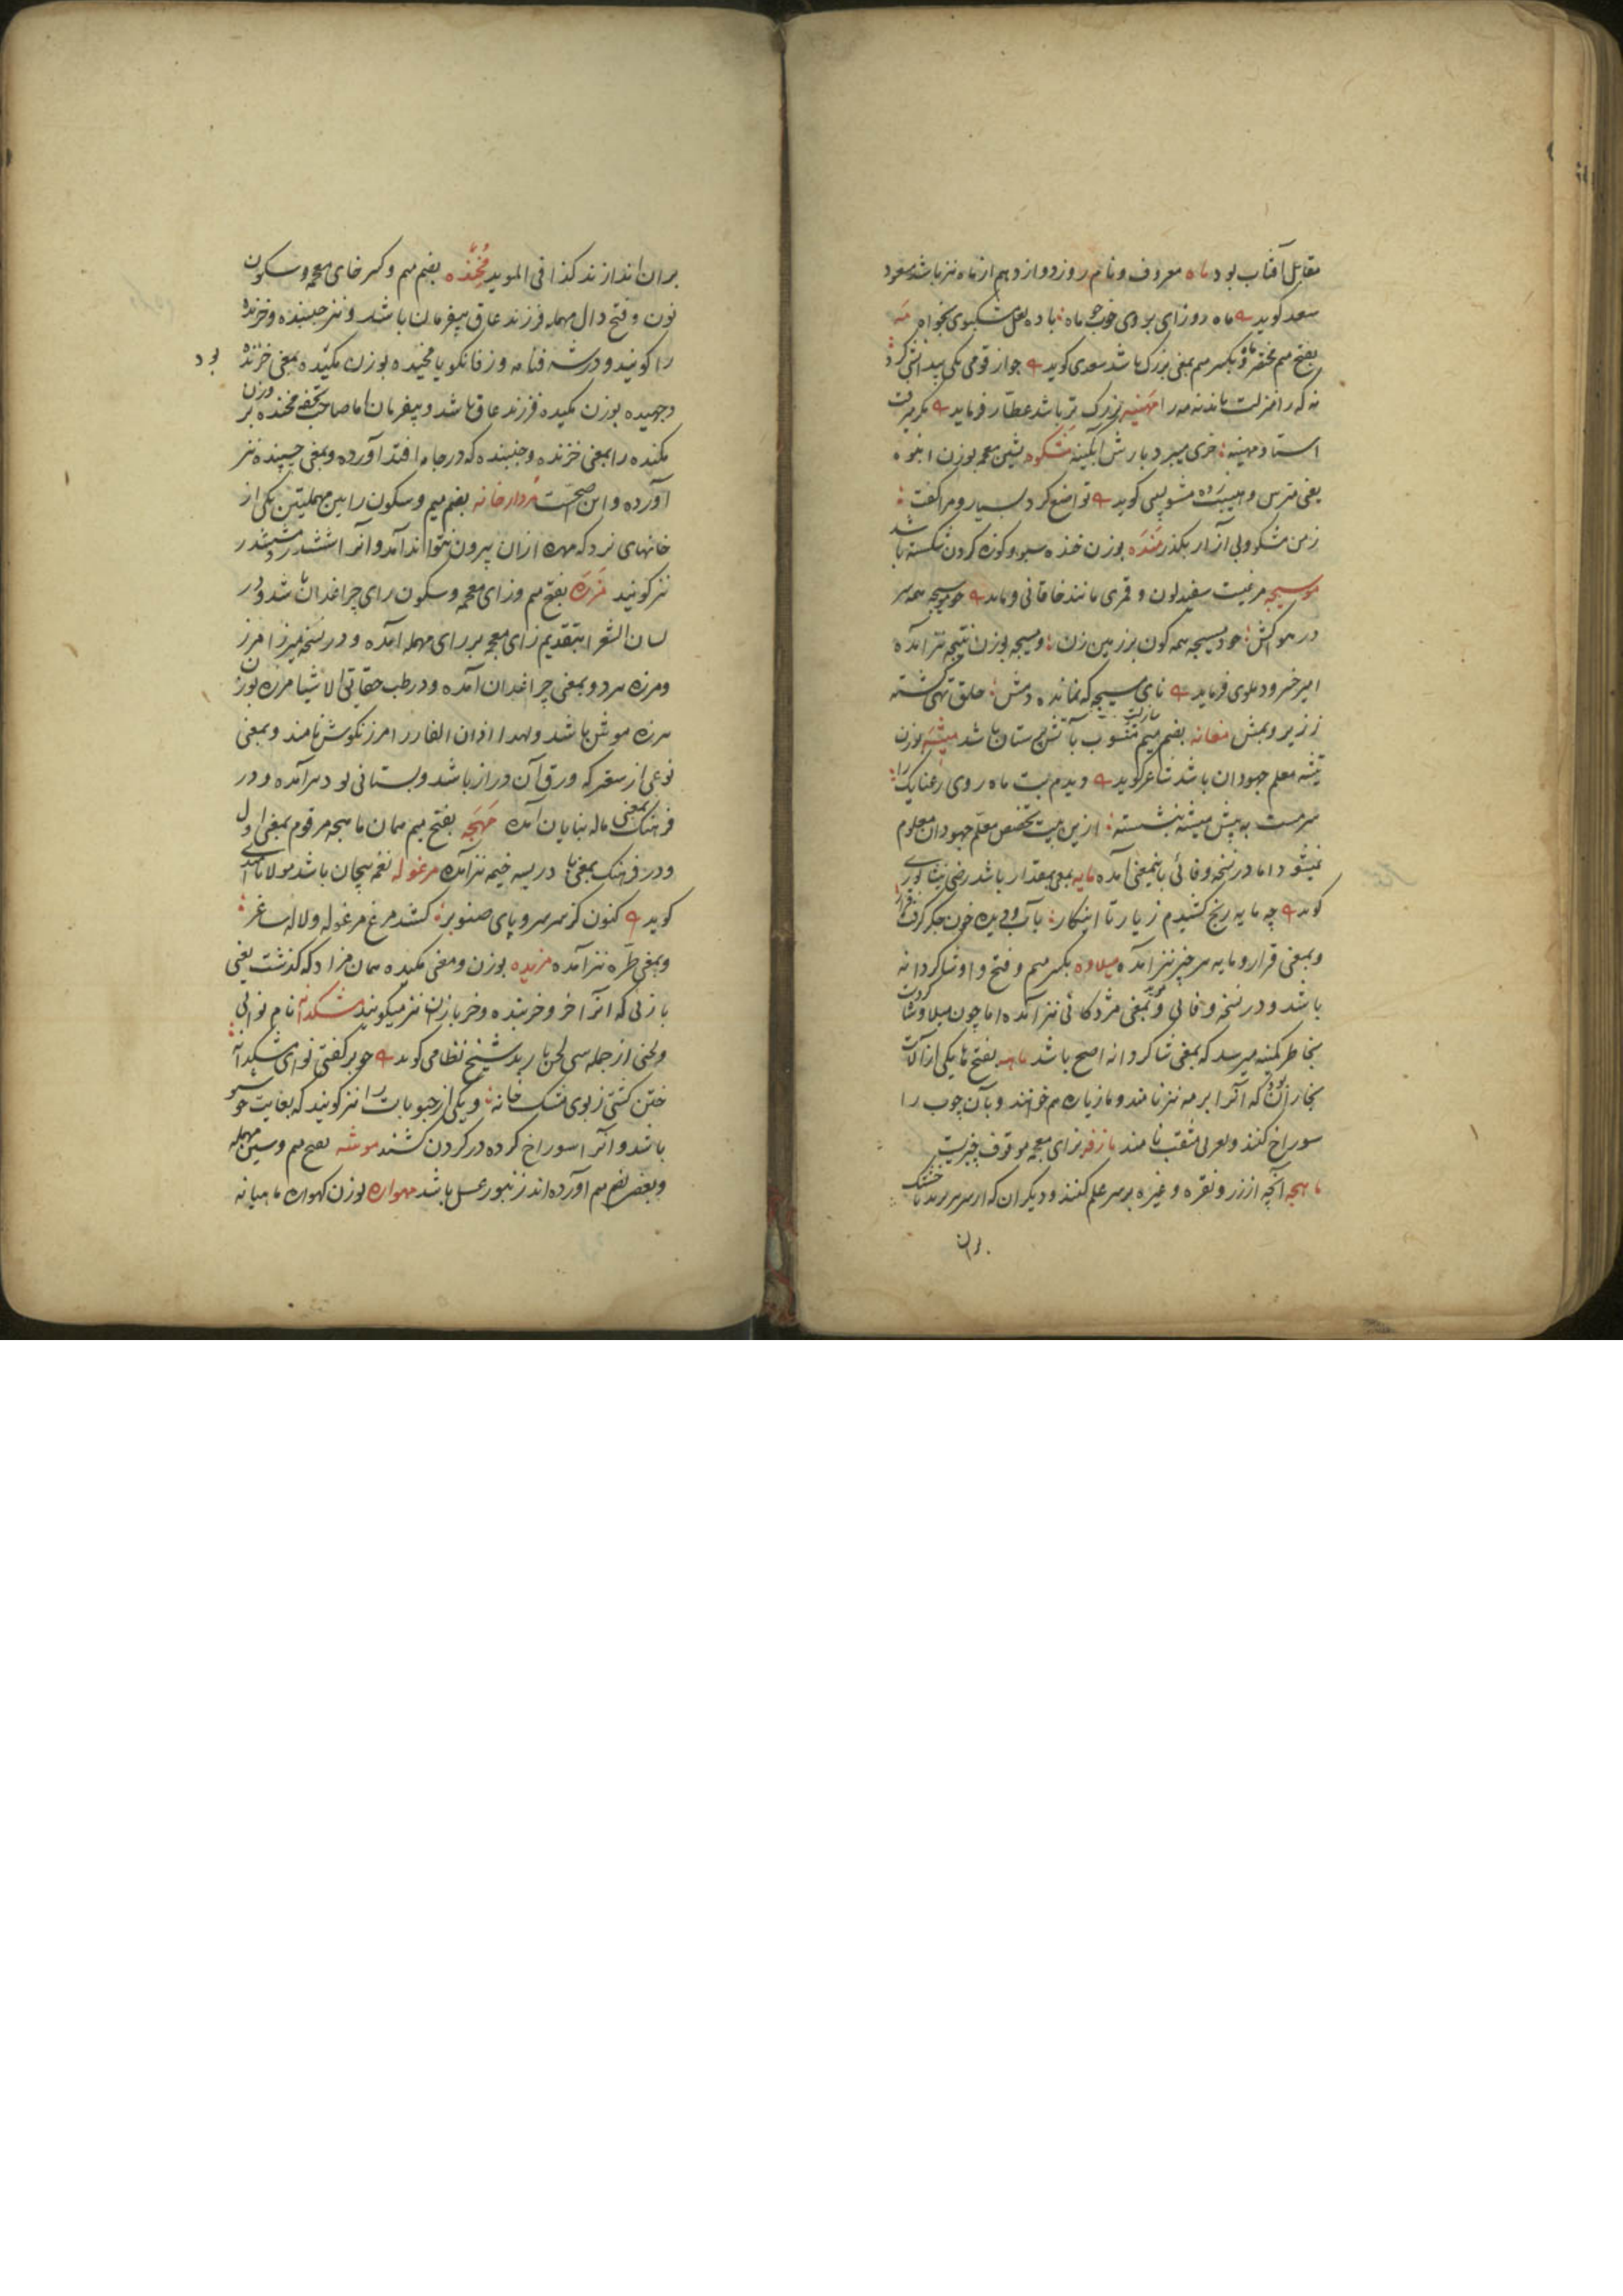 مقابل آفتاب بود ماه معروف و نام روز دوازدهم از ماه نیز باشد مسعود
سعد گوید ماه روز ای بروی خوب چو ماه باده لعل مشکبوی بخواه مه
بفتح میم مختصر ماه و بکسر میم بمعنی بزرگ باشد سعدی گوید چو از قومی یکی بیدانشی کرد
نه که را منزلت ماند نه مه را مهینه بزرگ تر باشد عطار فرماید مگر میرفت
استاد مهینه خری میبرد بارش آبگینه مشکوه بشین معجمه بوزن انبوه
یعنی مترس و هیبت زده مشو لبیبی گوید تواضع کرد بسیار و مرا گفت
زمن مشکوه و بی آزار بگذر منده بوزن خنده سبو و کوزه گردن شکسته باشد
موسیجه مرغیست سفید لون و قمری مانند خاقانی فرماید چو موسیجه همه سر
در هوا کش چو دمسیجه همه کون بر زمین زن و میسجه بوزن نتیجه نیز آمده
امیر خسرو دهلوی فرماید نای موسیجه که نمانده دمش حلق تهی گشته
ز زیر و بمش مغانه بضم میم منسوب بآتش پرستان باشد میشنه بوزن
تیشه معلم جهودان باشد شاعر گوید دیدم بت ماه روی رعنایک را
سرمست به پیش میشنه بنشسته ازین بیت تخصص معلم جهودان معلوم
نمیشود اما در نسخه وفائی باینمعنی آمده مایه بمعنی مقدار باشد رضی نیشابوری
گوید چه مایه رنج کشیدم ز یار تا این کار بآب دیده و خون جگر گرفت قرار
و بمعنی قرار و مایه هر چیز نیز آمده میلاوه بکسر میم و فتح واو شاگردانه
باشد و در نسخه وفائی و مؤید بمعنی مژدگانی نیز آمده اما چون میلاو شاگردست
بخاطر کمینه میرسد که بمعنی شاگردانه اصح باشد ماهه بفتح ها یکی از آلات
نجاران بود که آنرا برمه نیز نامند و مازیاره هم خوانند و بآن چوب را
سوراخ کنند و بعربی مثقب نامند مازفه بزای معجمه موقوف چیزیست
ماهچه آنچه از زر و نقره و غیره بر سر علم کنند و دیگر آن که از سر برند تا خشک
بران
بران اندازند کذا فی الموید مخنده بضم میم و کسر خای معجمه و سکون
نون و فتح دال مهمله فرزند عاق بیفرمان باشد و نیز جنبنده و خزنده
را گویند و در شرفنامه و زفانگویا مخیده بوزن مکیده بمعنی خزنده بود
و جمیده بوزن مکیده فرزند عاق باشد و بیفرمان اما صاحب تحفه مخنده بر وزن
مکنده را بمعنی خزنده و جنبنده که در جامه افتد آورده و بمعنی چسپنده نیز
آورده و این صحیحست مردارخانه بضم میم و سکون رابین مهملتین یکی از
خانهای نرد که مهره ازان بیرون نتواند آمد و آنرا ششدر و مششدر
نیز گویند مزره بفتح میم و زای معجمه و سکون رای چراغدان باشد و در
لسان الشعرا بتقدیم زای معجمه بر رای مهمله آمده و در نسخه میرزا مرز
و مرزه هر دو بمعنی چراغدان آمده و در طب حقایق الاشیا مرزه بوزن
هرزه موش باشد و لهذا اذان الفار را مرزنگوش نامند و بمعنی
نوعی از سعتر که ورق آن دراز باشد و بستانی بود هم آمده و در
فرهنگ بمعنی ماله بنایان آمده مهچه بفتح میم همان ماهچه مرقوم بمعنی اول
و در فرهنگ بمعنی ما در پسه خیمه نیز آمده مرغوله نغمه پیچان باشد مولانا هدی
گوید کنون کز سر سرو پای صنوبر کشد مرغ مرغوله و لاله ساغر
و بمعنی طره نیز آمده مزیده بوزن و معنی مکیده همان مزاد که گذشت یعنی
بازئی که آنرا خر و خربنده و خر بازن نیز میگویند مشکدانه نام نوائی
و لحنی از جمله سی لحن باربد شیخ نظامی گوید چو برگفتی نوای مشکدانه
ختن گشتی ز بوی مشک خانه و یکی از حبوبات را نیز گویند که بغایت خوشبو
باشد و آنرا سوراخ کرده در گردن کشند موسه بفتح میم و سین مهمله
و بعضی بضم میم آورده اند زنبور عسل باشد مهواره بوزن گهواره ماهیانه